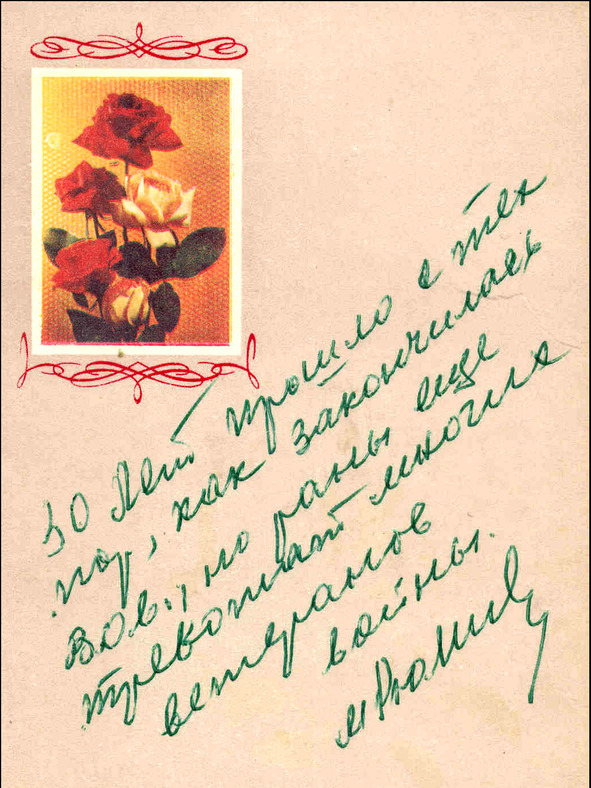 30 лет прошло с тех
пор, как закончилась
ВОВ., но раны еще
тревожат многих
ветеранов
войны.